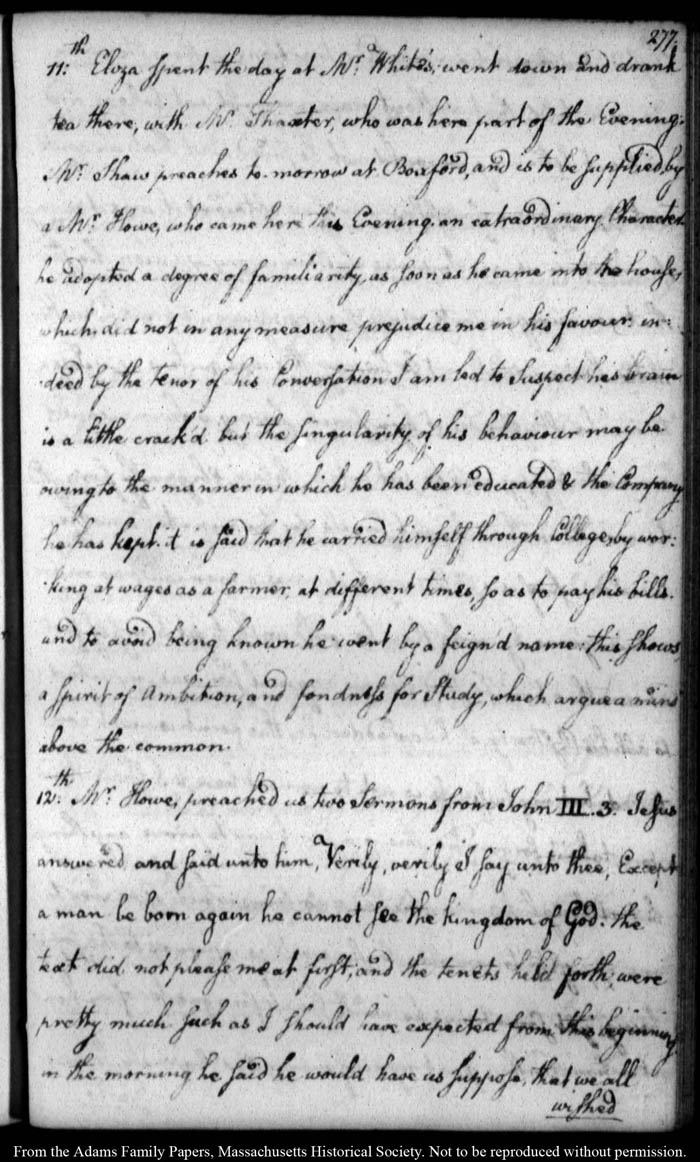 277.
11:th Eloza spent the day at Mr. White's; went down and drank
tea there, with Mr. Thaxter, who was here part of the Evening.
Mr. Shaw preaches to-morrow at Boxford, and is to be supplied by
a Mr. Howe, who came here this Evening. an extraordinary Character
he adopted a degree of familiarity, as soon as he came into the house,
which did not in any measure prejudice me in his favour. in-
-deed by the tenor of his Conversation I am led to suspect his brain
is a little crack'd but the singularity of his behaviour may be
owing to the manner in which he has been educated & the Company
he has kept. it is said that he carried himself through College, by wor:
:king at wages as a farmer, at different times, so as to pay his bills.
and to avoid being known he went by a feign'd name: this shows
a spirit of Ambition, and fondness for Study, which argue a mind
above the common.
12:th Mr. Howe, preached us two Sermons from John III. 3. Jesus
answered and said unto him, Verily, verily I say unto thee, Except
a man be born again he cannot see the kingdom of God. the
text did not please me at first, and the tenets held forth were
pretty much such as I should have expected from this beginning
in the morning he said he would have us suppose, that we all
wished
From the Adams Family Papers, Massachusetts Historical Society. Not to be reproduced without permission.